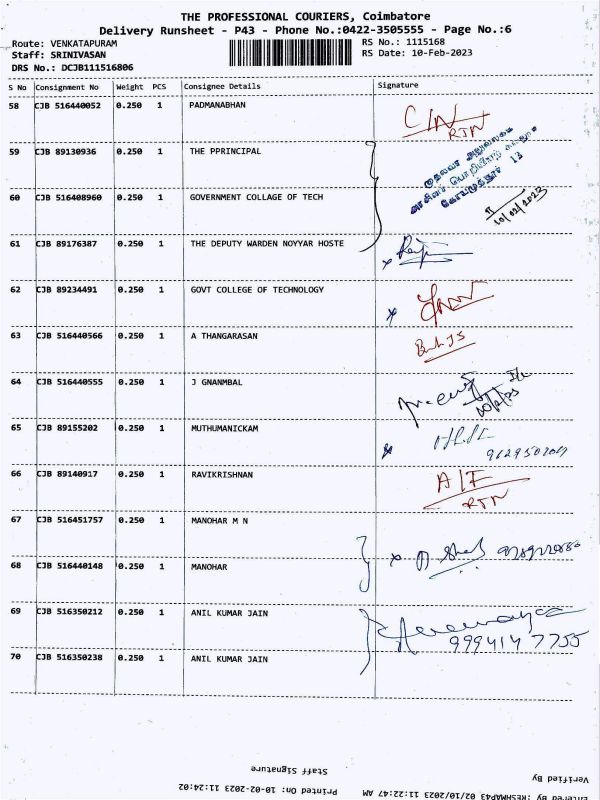 THE PROFESSIONAL COURIERS, Coimbatore
Delivery Runsheet - P43 - Phone No.:0422-3505555 - Page No.:6
Route: VENKATAPURAM
Staff: SRINIVASAN
DRS No.: DCJB111516806
RS No.: 1115168
RS Date: 10-Feb-2023
S No Consignment No Weight PCS Consignee Details Signature
58 CJB 516440052 0.250 1 PADMANABHAN
RTN
59 CJB 89130936 0.250 1 THE PPRINCIPAL
60 CJB 516408960 0.250 1 GOVERNMENT COLLAGE OF TECH
10/02/2023
61 CJB 89176387 0.250 1 THE DEPUTY WARDEN NOYYAR HOSTE
62 CJB 89234491 0.250 1 GOVT COLLEGE OF TECHNOLOGY
63 CJB 516440566 0.250 1 A THANGARASAN
64 CJB 516440555 0.250 1 J GNANMBAL
65 CJB 89155202 0.250 1 MUTHUMANICKAM
66 CJB 89140917 0.250 1 RAVIKRISHNAN
RTN
67 CJB 516451757 0.250 1 MANOHAR M N
68 CJB 516440148 0.250 1 MANOHAR
69 CJB 516350212 0.250 1 ANIL KUMAR JAIN
9994147755
70 CJB 516350238 0.250 1 ANIL KUMAR JAIN
Staff Signature
Verified By
Printed On: 10-02-2023 11:24:02
Entered By :RESHMAP43 02/10/2023 11:22:47 AM